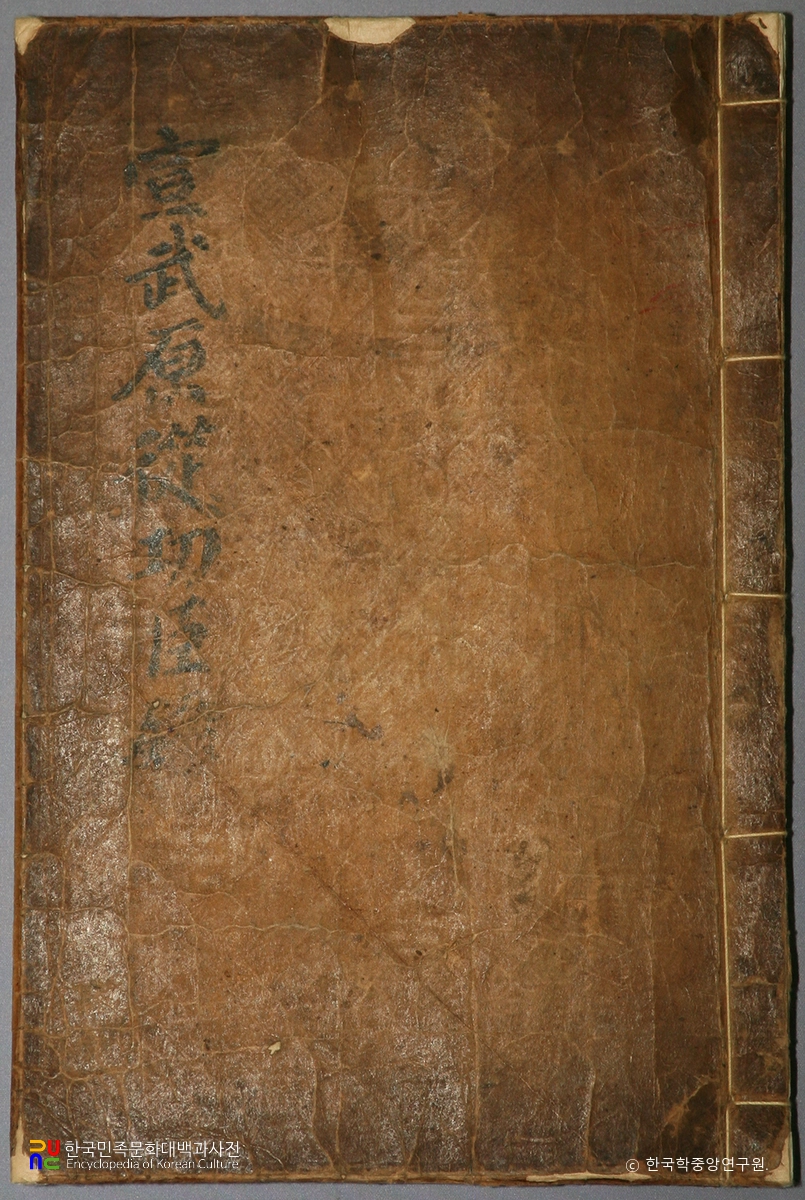 宣武原從功臣錄
한국민족문화대백과사전
Encyclopedia of Korean Culture
ⓒ 한국학중앙연구원